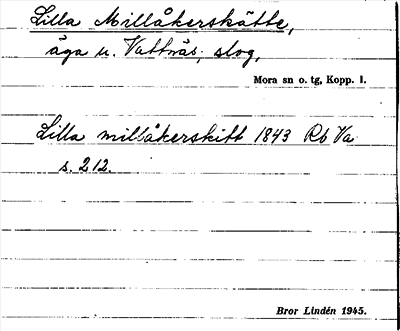 Lilla Millåkerskätte,
äga u. Vattnäs, slog,
Mora sn o. tg, Kopp. l.
Lilla millåkerskitt 1843 Rb Va
s. 212.
Bror Lindén 1945.